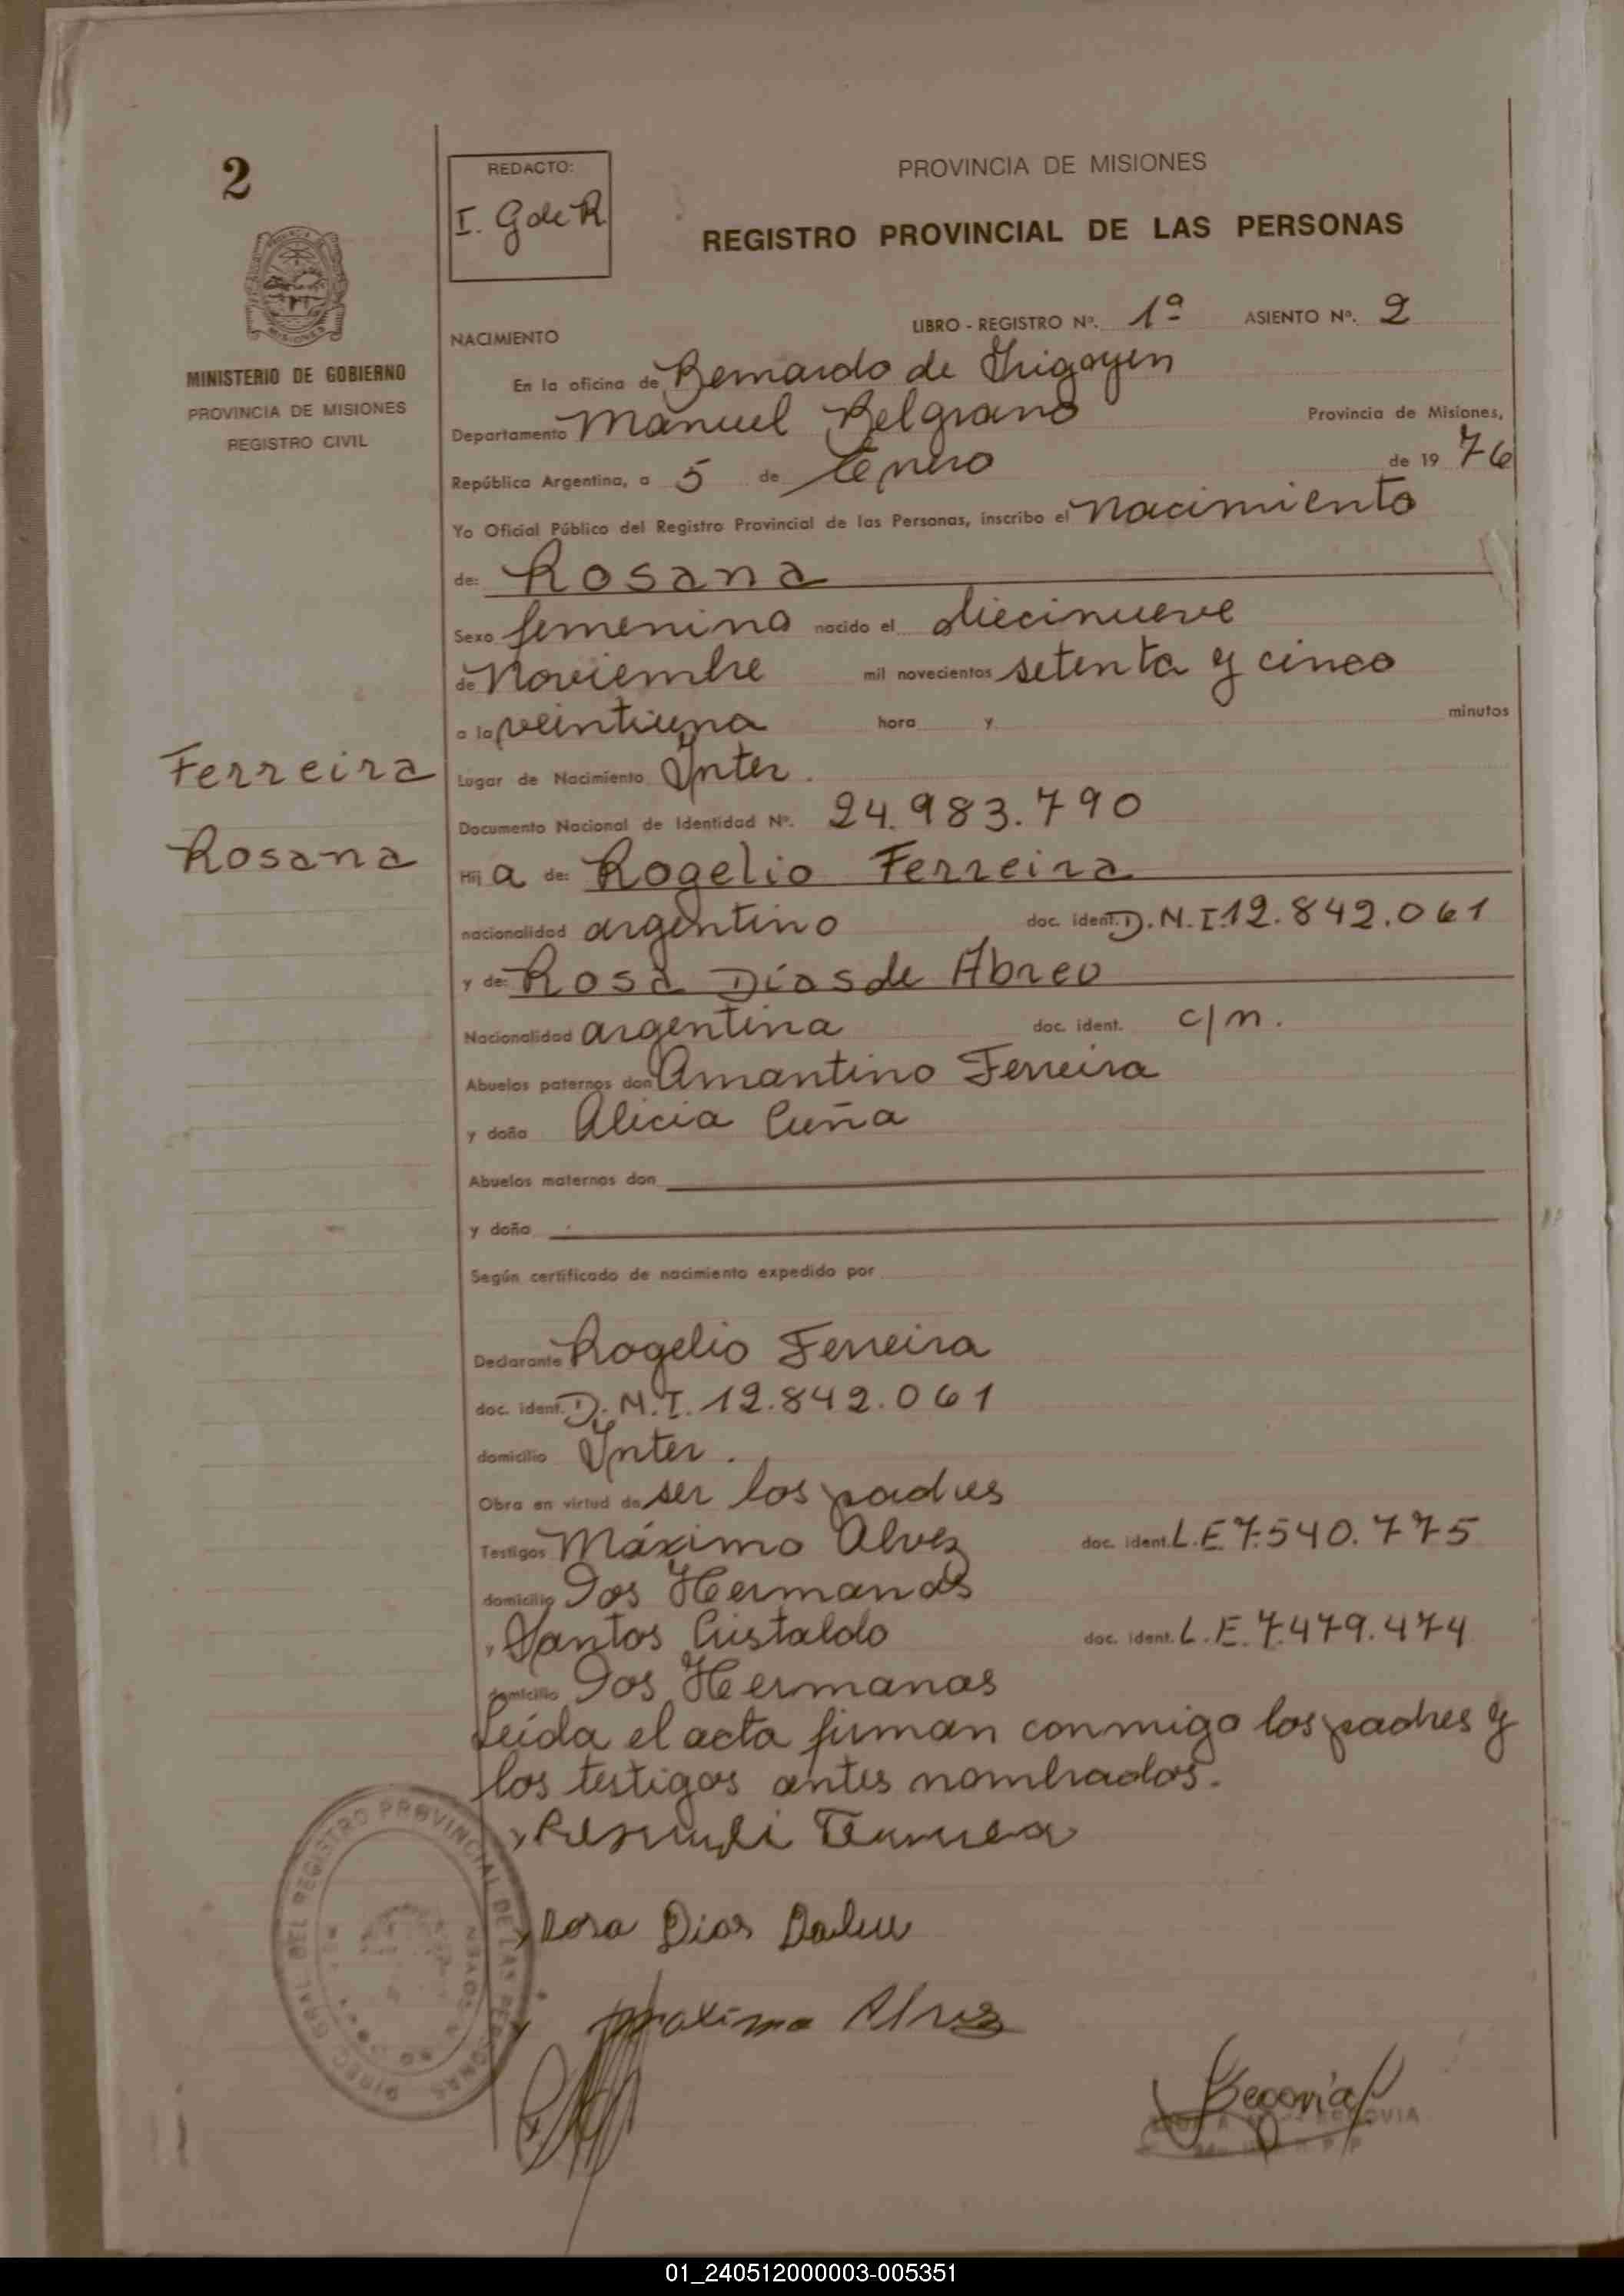 2
REDACTO:
I. G de R
PROVINCIA DE MISIONES
REGISTRO PROVINCIAL DE LAS PERSONAS
MINISTERIO DE GOBIERNO
PROVINCIA DE MISIONES
REGISTRO CIVIL
NACIMIENTO LIBRO - REGISTRO Nº. 1º ASIENTO Nº. 2
En la oficina de Bernardo de Irigoyen
Departamento Manuel Belgrano Provincia de Misiones,
República Argentina, a 5 de Enero de 19 76
Yo Oficial Público del Registro Provincial de las Personas, inscribo el nacimiento
de: Rosana
Sexo femenino nacido el diecinueve
de Noviembre mil novecientos setenta y cinco
a la veintiuna hora y minutos
Ferreira
Lugar de Nacimiento Inter.
Documento Nacional de Identidad Nº. 24.983.790
Rosana
Hij a de: Rogelio Ferreira
nacionalidad argentino doc. ident. D.N.I. 12.842.061
y de: Rosa Días de Abreo
Nacionalidad argentina doc. ident. c/n.
Abuelos paternos don Amantino Ferreira
y doña Alicia Cuña
Abuelos maternos don
y doña
Según certificado de nacimiento expedido por
Declarante Rogelio Ferreira
doc. ident. D.N.I. 12.842.061
domicilio Inter.
Obra en virtud de ser los padres
Testigos Máximo Alvez doc. ident. L.E 7.540.775
domicilio Dos Hermanas
y Santos Cristaldo doc. ident. L.E. 7.479.474
domicilio Dos Hermanas
Leída el acta firman conmigo los padres y
los testigos antes nombrados.
Rosa Dias Dabreu
Maximo Alvez
Segovia
DIREC. GRAL. DEL REGISTRO PROVINCIAL DE LAS PERSONAS
01_240512000003-005351